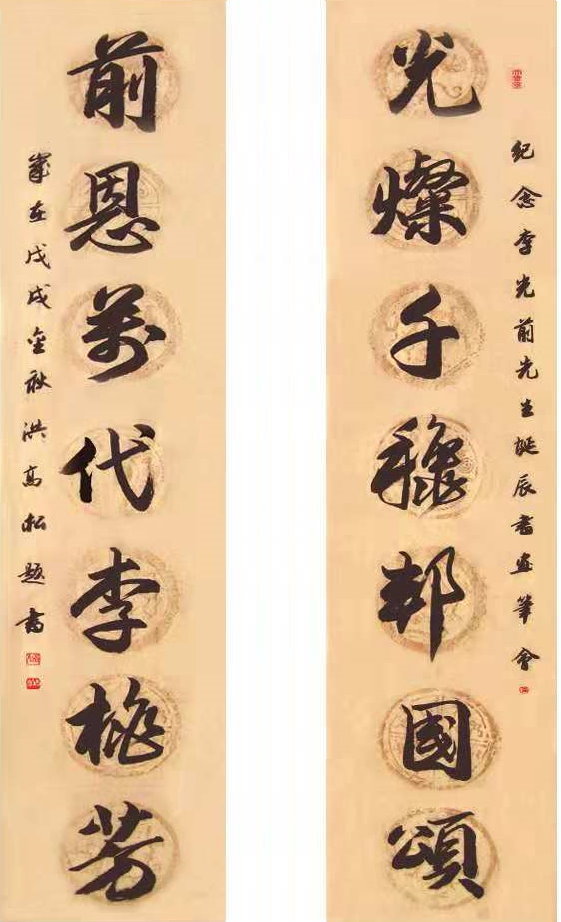 紀念李光前先生誕辰書畫筆會
光燦千穐邦國頌
前恩萬代李桃芳
歲在戊戌金秋洪高松題書